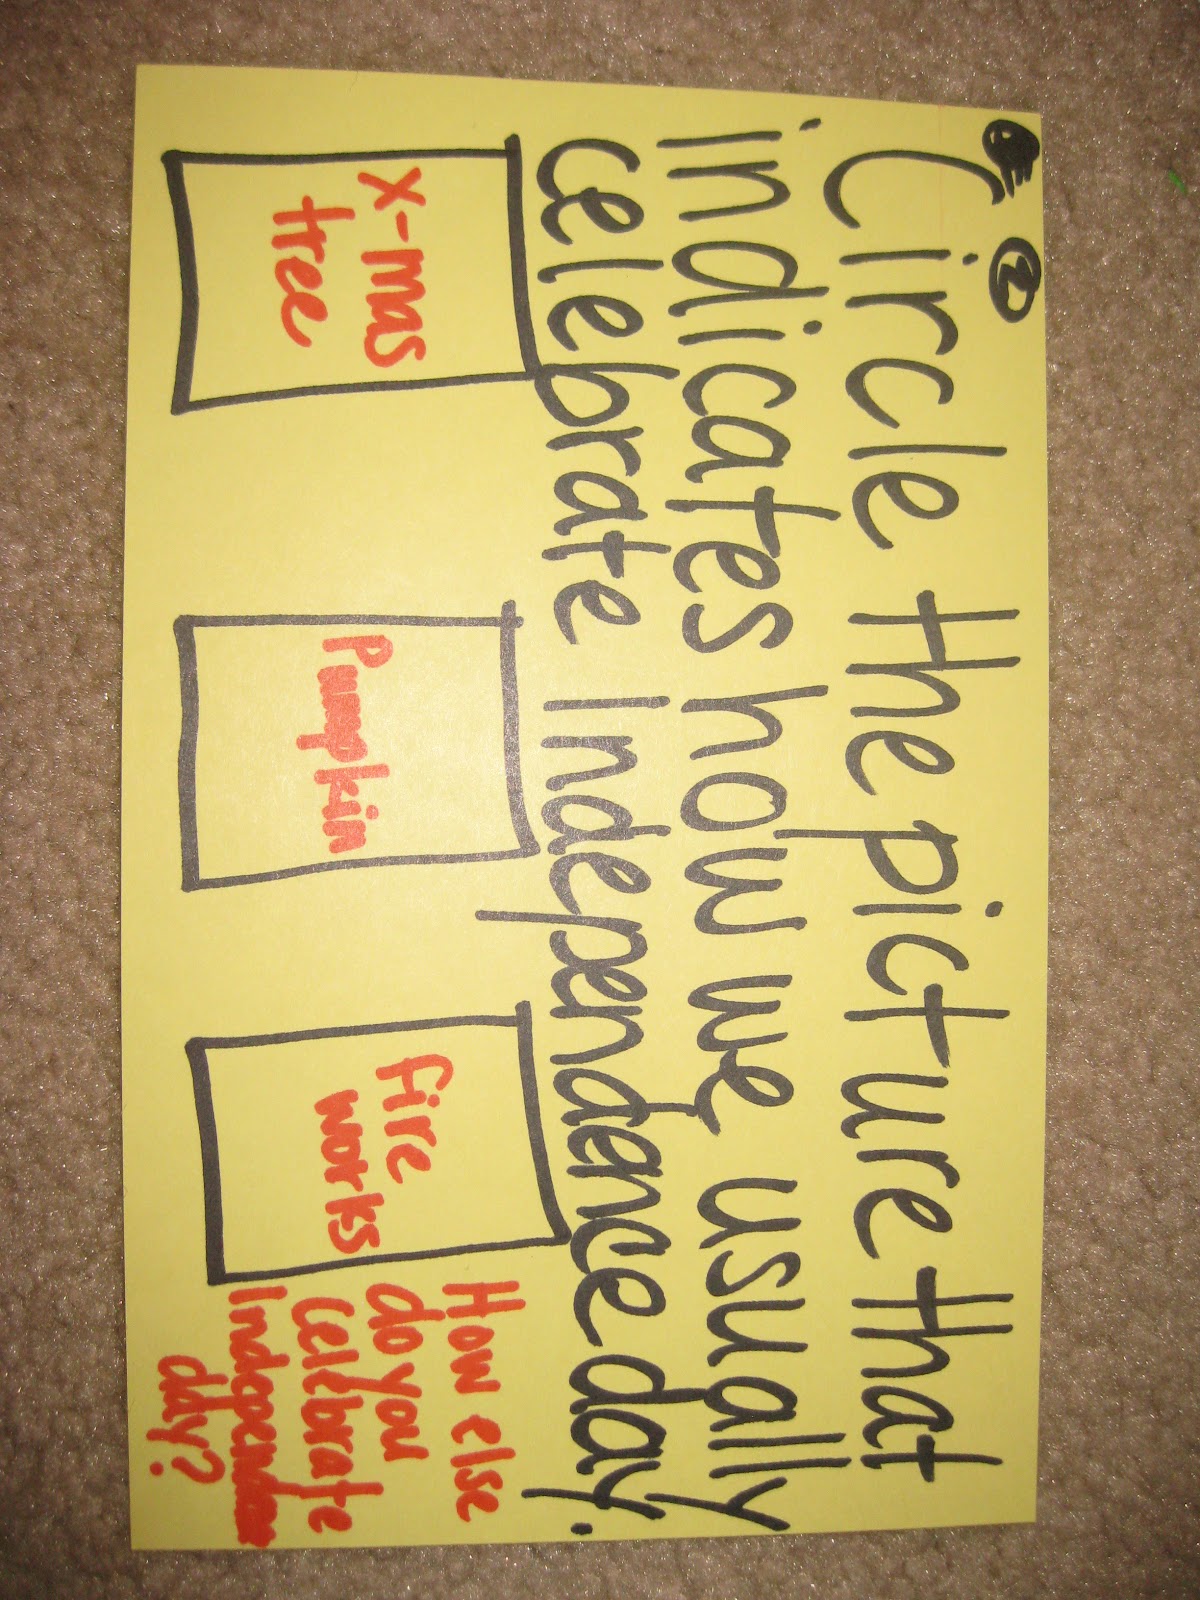 2
Circle the picture that
indicates how we usually
celebrate Independence day.
X-mas
tree
Pumpkin
Fire
works
How else
do you
celebrate
Independence
day?